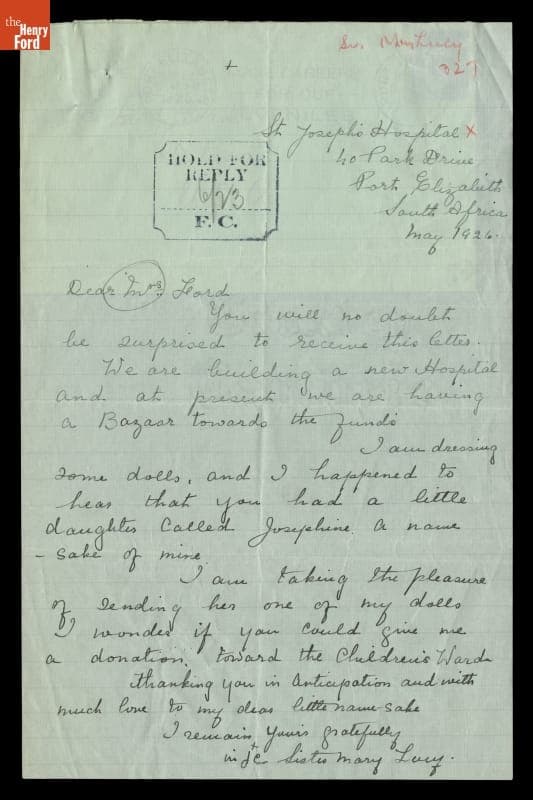 the
Henry
Ford
327
+
St Joseph's Hospital X
40 Park Drive
Port Elizabeth
South Africa
May 1926.
HOLD FOR
REPLY
6/23
F. C.
Dear Mrs. Ford
You will no doubt
be surprised to receive this letter.
We are building a new Hospital
and at present we are having
a Bazaar towards the funds
I am dressing
some dolls, and I happened to
hear that you had a little
daughter called Josephine a name
- sake of mine
I am taking the pleasure
of sending her one of my dolls
I wonder if you could give me
a donation toward the Children's Wards
thanking you in Anticipation and with
much love to my dear little name-sake
I remain, Yours gratefully
in Sister Mary Lucy.